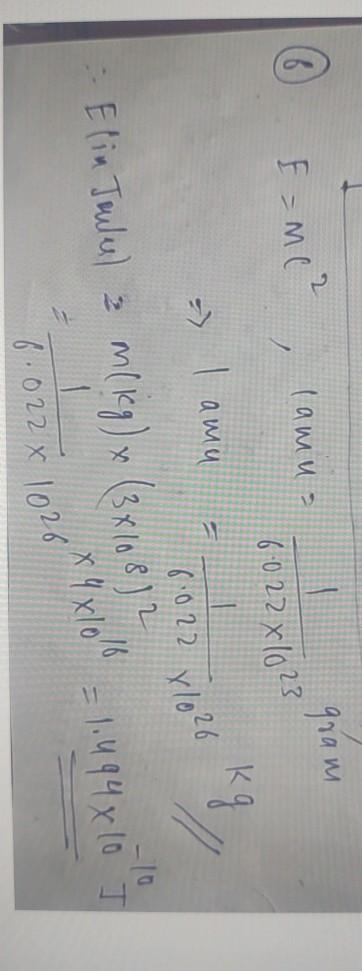 6 E = mc², 1 amu = 1/6.022×10²³ gram
⇒ 1 amu = 1/6.022 ×10²⁶ kg
∴ E (in Joule) = m(kg) × (3×10⁸)²
= 1/6.022×10²⁶ × 9×10¹⁶ = 1.494×10⁻¹⁰ J